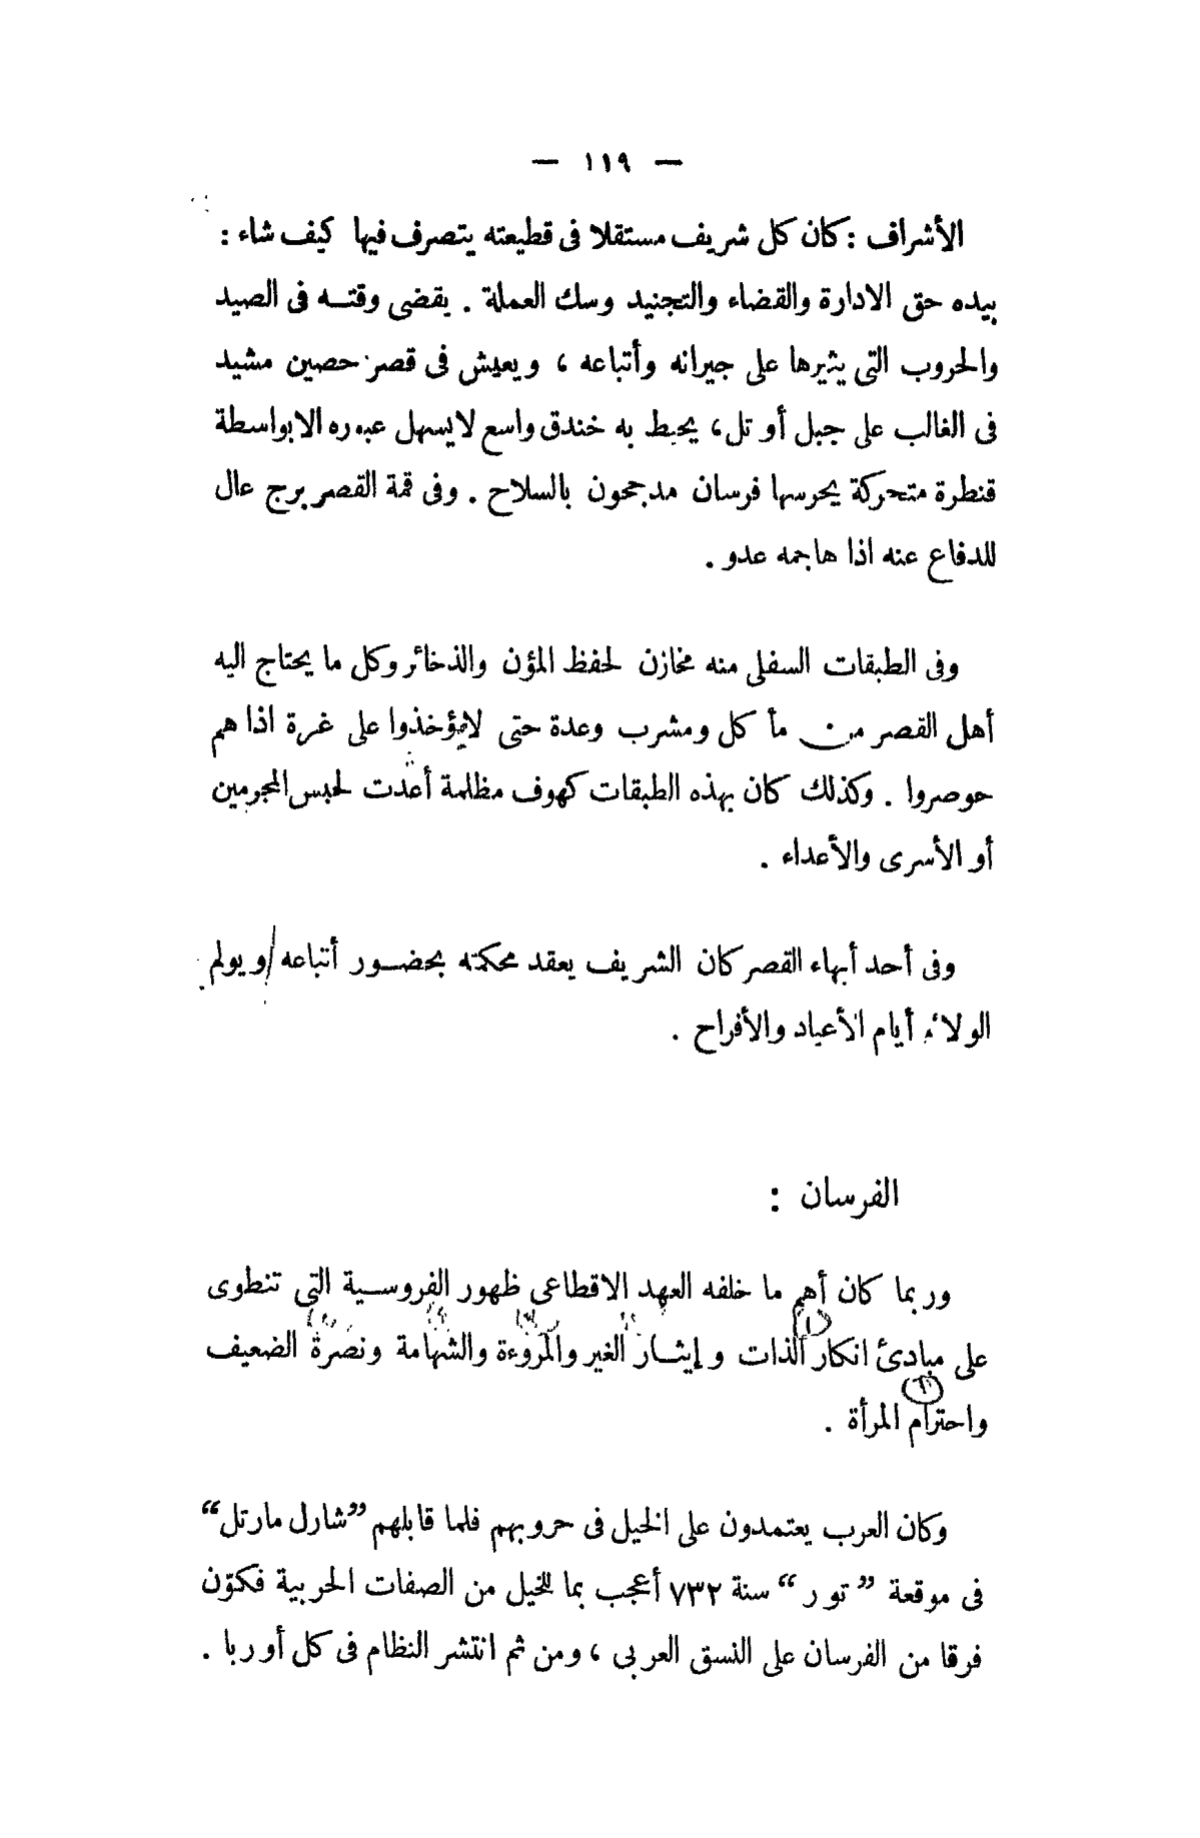 — ١١٩ —
الأشراف : كان كل شريف مستقلا فى قطيعته يتصرف فيها كيف شاء :
بيده حق الادارة والقضاء والتجنيد وسك العملة . يقضى وقته فى الصيد
والحروب التى يثيرها على جيرانه وأتباعه ، ويعيش فى قصر حصين مشيد
فى الغالب على جبل أو تل ، يحيط به خندق واسع لايسهل عبوره الابواسطة
قنطرة متحركة يحرسها فرسان مدججون بالسلاح . وفى قمة القصر برج عال
للدفاع عنه اذا هاجمه عدو .
وفى الطبقات السفلى منه مخازن لحفظ المؤن والذخائر وكل ما يحتاج اليه
أهل القصر من مأكل ومشرب وعدة حتى لايؤخذوا على غرة اذا هم
حوصروا . وكذلك كان بهذه الطبقات كهوف مظلمة أعدت لحبس المجرمين
أو الأسرى والأعداء .
وفى أحد أبهاء القصر كان الشريف يعقد محكمته بحضور أتباعه / ويولم
الولائم أيام الأعياد والأفراح .
الفرسان :
وربما كان أهم ما خلفه العهد الاقطاعى ظهور الفروسية التى تنطوى
(١)
على مبادئ انكار الذات وإيثار الغير والمروءة والشهامة ونصرة الضعيف
(٦)
واحترام المرأة .
وكان العرب يعتمدون على الخيل فى حروبهم فلما قابلهم ”شارل مارتل“
فى موقعة ” تور “ سنة ٧٣٢ أعجب بما للخيل من الصفات الحربية فكوّن
فرقا من الفرسان على النسق العربى ، ومن ثم انتشر النظام فى كل أوربا .